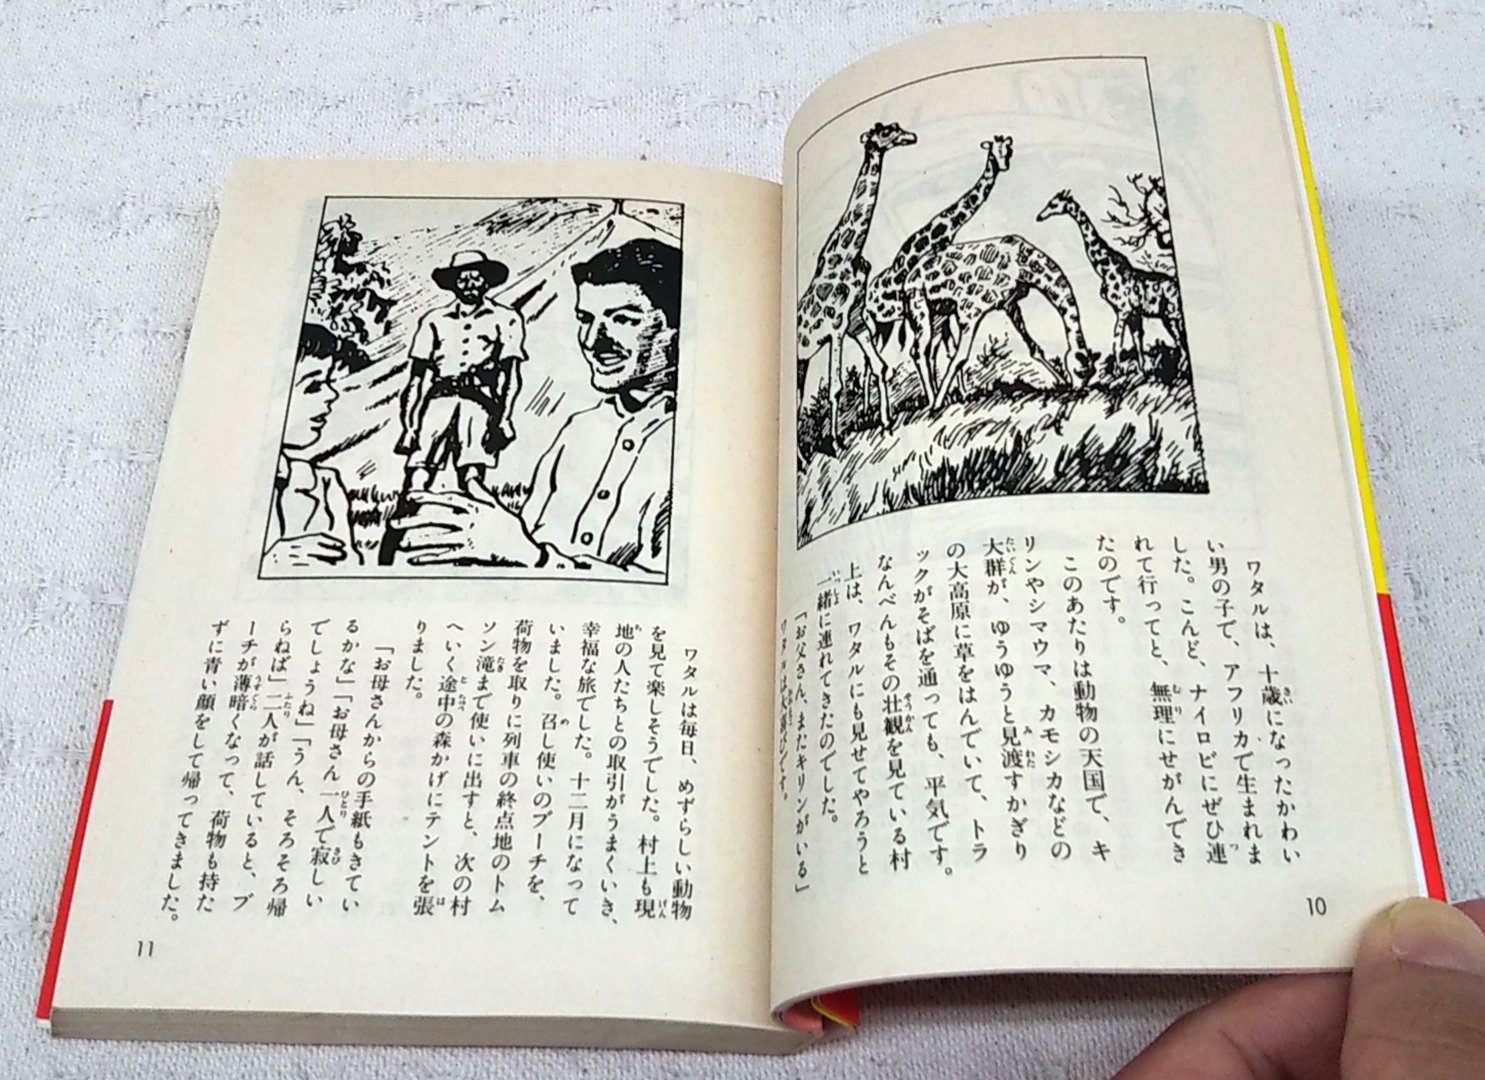 ワタルは、十歳になったかわい
い男の子で、アフリカで生まれま
した。こんど、ナイロビにぜひ連
れて行ってと、無理にせがんでき
たのです。
このあたりは動物の天国で、キ
リンやシマウマ、カモシカなどの
大群が、ゆうゆうと見渡すかぎり
の大高原に草をはんでいて、トラ
ックがそばを通っても、平気です。
なんべんもその壮観を見ている村
上は、ワタルにも見せてやろうと
一緒に連れてきたのでした。
「お父さん、またキリンがいる」
ワタルは大喜びです。
10
ワタルは毎日、めずらしい動物
を見て楽しそうでした。村上も現
地の人たちとの取引がうまくいき、
幸福な旅でした。十二月になって
いました。召し使いのブーチを、
荷物を取りに列車の終点地のトム
ソン滝まで使いに出すと、次の村
へいく途中の森かげにテントを張
りました。
「お母さんからの手紙もきてい
るかな」「お母さん一人で寂しい
でしょうね」「うん、そろそろ帰
らねば」二人が話していると、ブ
ーチが薄暗くなって、荷物も持た
ずに青い顔をして帰ってきました。
11